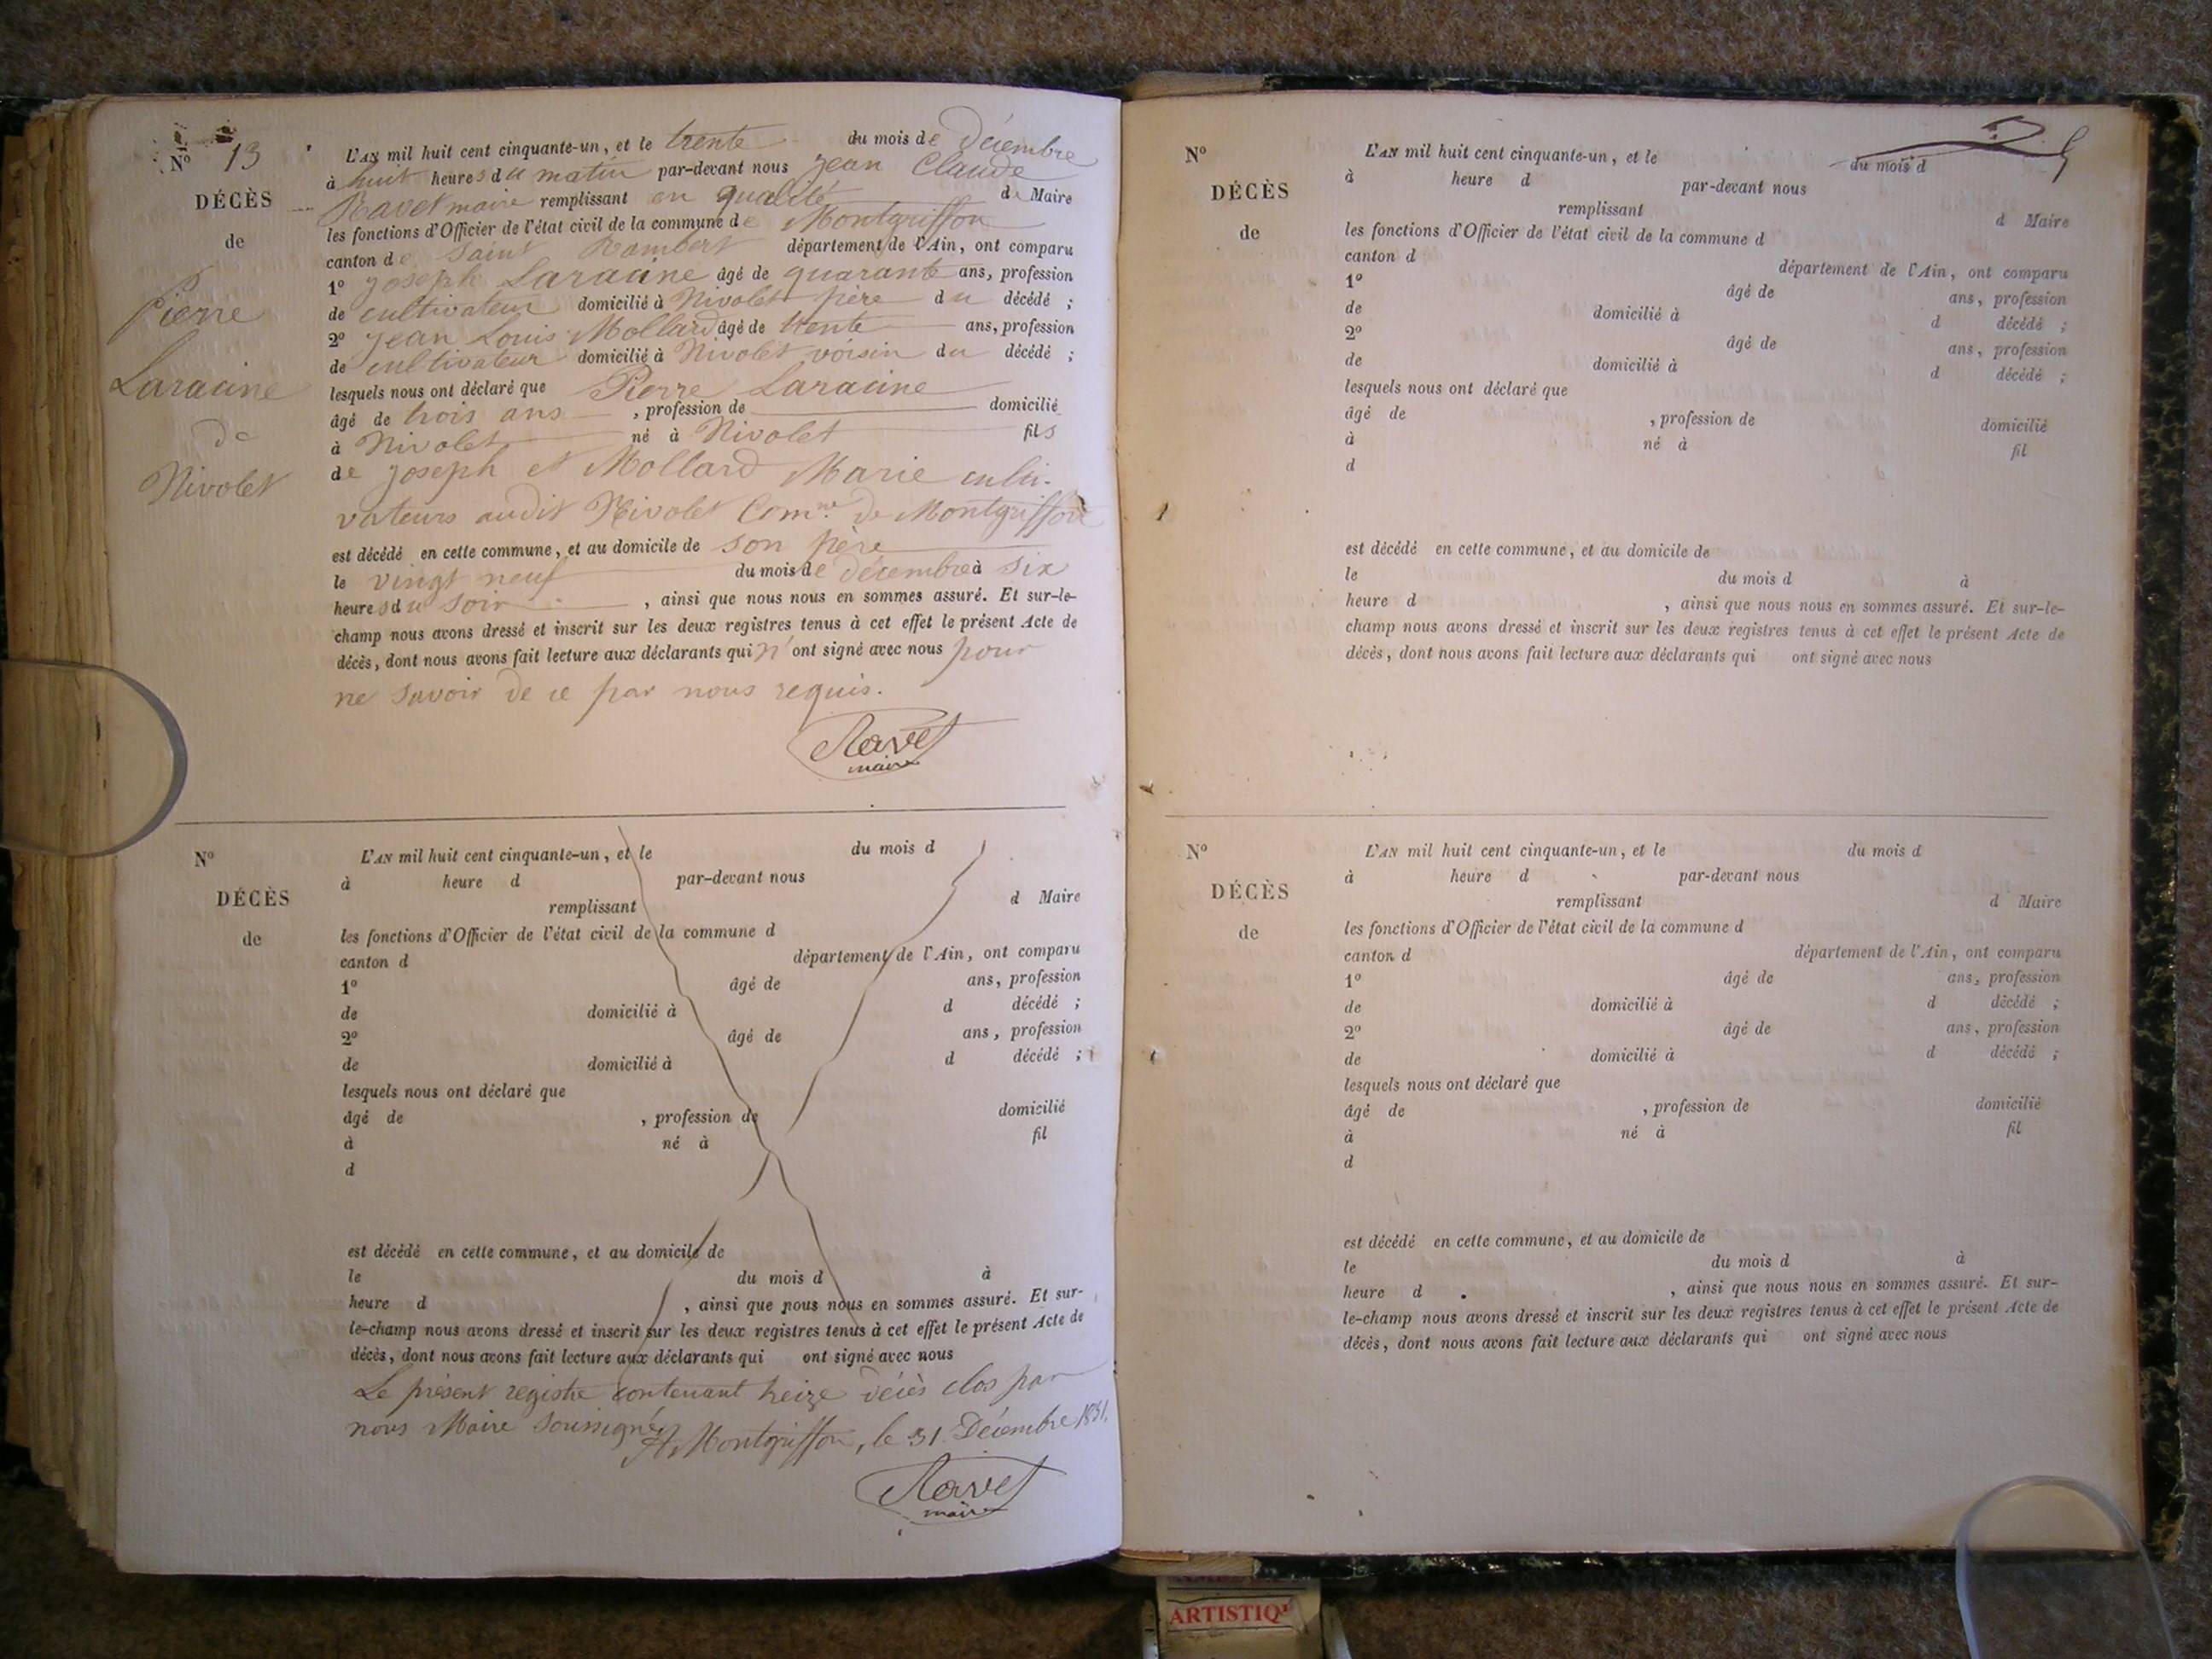 Nº 13
DÉCÈS
de
Pierre
Laracine
de
Nivolet
L'AN mil huit cent cinquante-un, et le trente du mois de Décembre
à huit heures du matin par-devant nous Jean Claude
Ravet maire remplissant en qualité de Maire
les fonctions d'Officier de l'état civil de la commune de Montgriffon
canton de Saint Rambert département de l'Ain, ont comparu
1º Joseph Laracine âgé de quarante ans, profession
de cultivateur domicilié à Nivolet père du décédé ;
2º Jean Louis Mollard âgé de trente ans, profession
de cultivateur domicilié à Nivolet voisin du décédé ;
lesquels nous ont déclaré que Pierre Laracine
âgé de trois ans , profession de domicilié
à Nivolet né à Nivolet fils
de Joseph et Mollard Marie culti-
vateurs audit Nivolet Comne de Montgriffon
est décédé en cette commune, et au domicile de son père
le vingt neuf du mois de décembre à six
heures du soir , ainsi que nous nous en sommes assuré. Et sur-le-
champ nous avons dressé et inscrit sur les deux registres tenus à cet effet le présent Acte de
décès, dont nous avons fait lecture aux déclarants qui n'ont signé avec nous pour
ne savoir de ce par nous requis.
Ravet
maire
Nº
DÉCÈS
de
L'AN mil huit cent cinquante-un, et le du mois d
à heure d par-devant nous
remplissant d Maire
les fonctions d'Officier de l'état civil de la commune d
canton d département de l'Ain, ont comparu
1º âgé de ans, profession
de domicilié à d décédé ;
2º âgé de ans, profession
de domicilié à d décédé ;
lesquels nous ont déclaré que
âgé de , profession de domicilié
à né à fil
d
est décédé en cette commune, et au domicile de
le du mois d à
heure d , ainsi que nous nous en sommes assuré. Et sur-
le-champ nous avons dressé et inscrit sur les deux registres tenus à cet effet le présent Acte de
décès, dont nous avons fait lecture aux déclarants qui ont signé avec nous
Le présent registre contenant treize décès clos par
nous Maire soussigné
A Montgriffon, le 31 Décembre 1851.
Ravet
maire
Nº
DÉCÈS
de
L'AN mil huit cent cinquante-un, et le du mois d
à heure d par-devant nous
remplissant d Maire
les fonctions d'Officier de l'état civil de la commune d
canton d département de l'Ain, ont comparu
1º âgé de ans, profession
de domicilié à d décédé ;
2º âgé de ans, profession
de domicilié à d décédé ;
lesquels nous ont déclaré que
âgé de , profession de domicilié
à né à fil
d
est décédé en cette commune, et au domicile de
le du mois d à
heure d , ainsi que nous nous en sommes assuré. Et sur-le-
champ nous avons dressé et inscrit sur les deux registres tenus à cet effet le présent Acte de
décès, dont nous avons fait lecture aux déclarants qui ont signé avec nous
Nº
DÉCÈS
de
L'AN mil huit cent cinquante-un, et le du mois d
à heure d par-devant nous
remplissant d Maire
les fonctions d'Officier de l'état civil de la commune d
canton d département de l'Ain, ont comparu
1º âgé de ans, profession
de domicilié à d décédé ;
2º âgé de ans, profession
de domicilié à d décédé ;
lesquels nous ont déclaré que
âgé de , profession de domicilié
à né à fil
d
est décédé en cette commune, et au domicile de
le du mois d à
heure d , ainsi que nous nous en sommes assuré. Et sur-
le-champ nous avons dressé et inscrit sur les deux registres tenus à cet effet le présent Acte de
décès, dont nous avons fait lecture aux déclarants qui ont signé avec nous